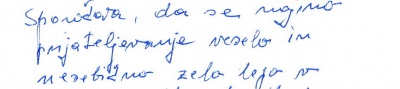 Sporočava, da se nujno
prijateljevanje veselo in
nesebično zelo lepo v